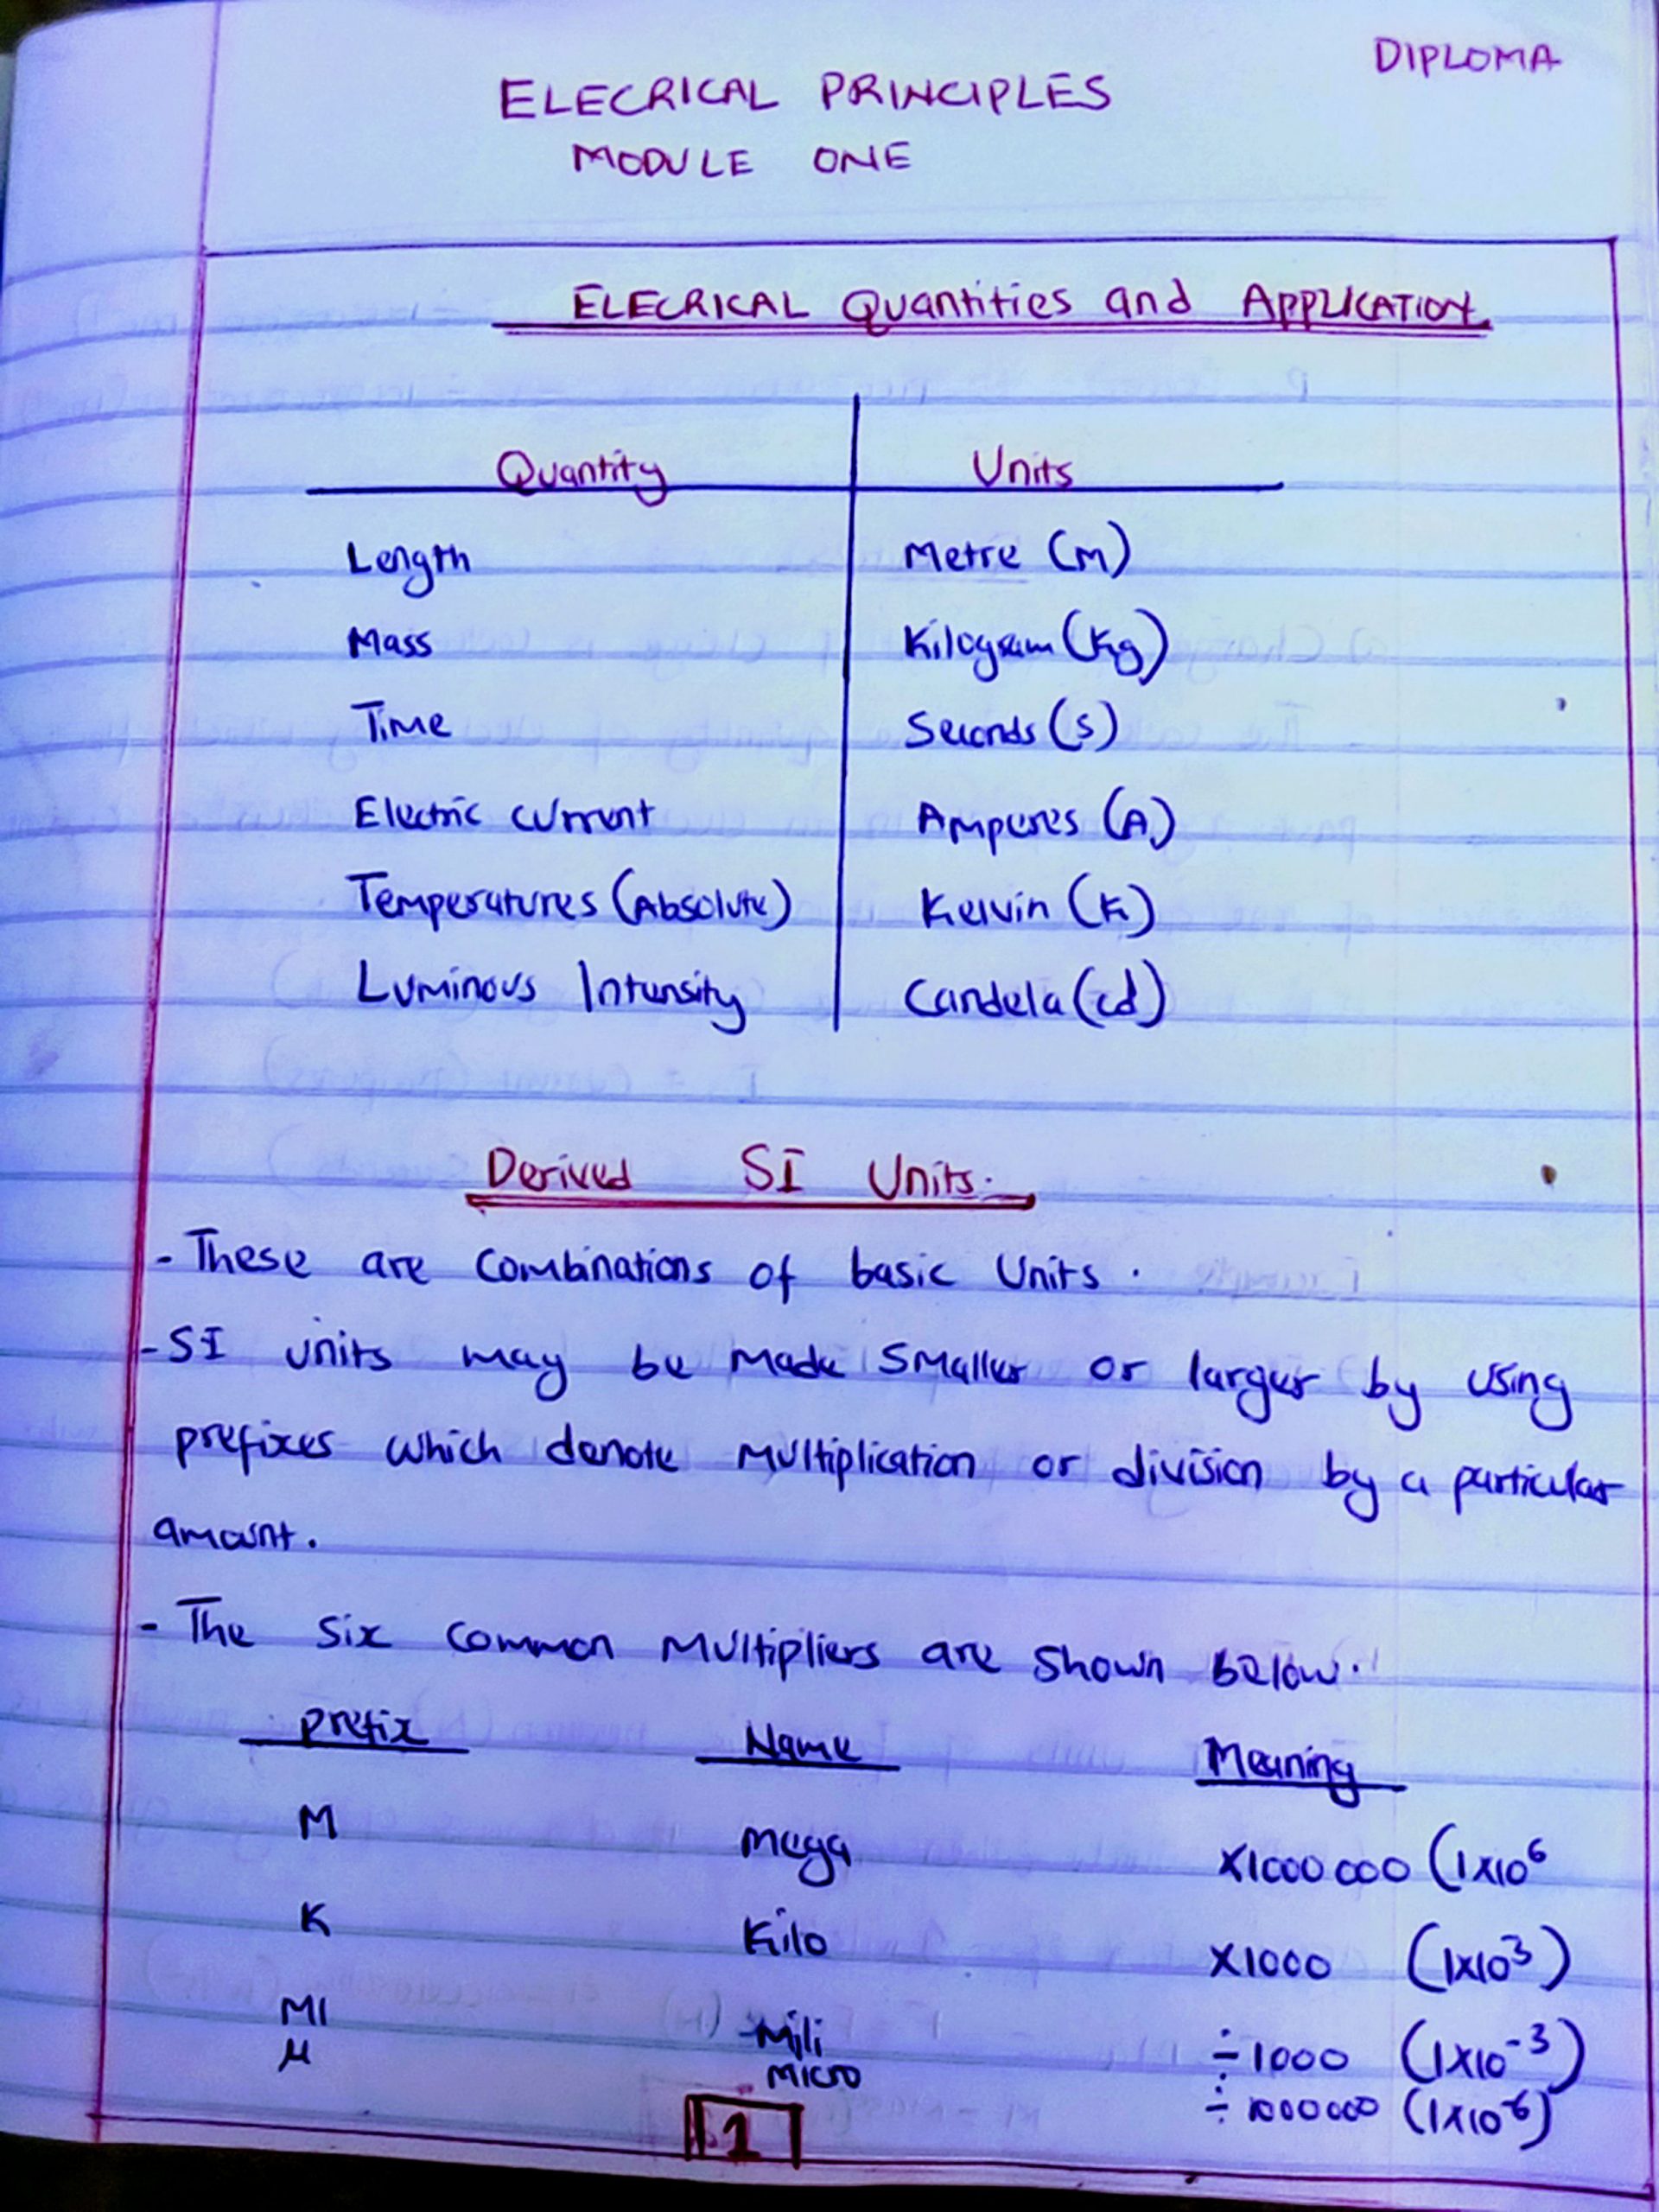 DIPLOMA
ELECRICAL PRINCIPLES
MODULE ONE
ELECRICAL Quantities and APPLICATION
Quantity Units
Length Metre (m)
Mass Kilogram (Kg)
Time Seconds (s)
Electric current Amperes (A)
Temperatures (Absolute) Kelvin (K)
Luminous Intensity Candela (cd)
Derived SI Units.
- These are combinations of basic Units.
- SI units may be made smaller or larger by using
prefixes which denote multiplication or division by a particular
amount.
- The six common multipliers are shown below.
prefix Name Meaning
M mega x1000 000 (1x10⁶
K Kilo x1000 (1x10³)
MI Mili ÷1000 (1x10⁻³)
μ micro ÷1000000 (1x10⁻⁶)
1